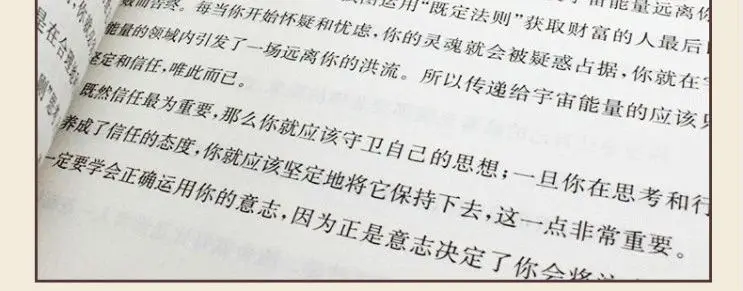 宇宙能量远离你
运用“既定法则”获取财富的人最后
败而告终。每当你开始怀疑和忧虑，你的灵魂就会被疑惑占据，你就在
能量的领域内引发了一场远离你的洪流。所以传递给宇宙能量的应该
坚定和信任，唯此而已。
既然信任最为重要，那么你就应该守卫自己的思想；一旦你在思考和行
养成了信任的态度，你就应该坚定地将它保持下去，这一点非常重要。
一定要学会正确运用你的意志，因为正是意志决定了你会将
是在合理
则“思